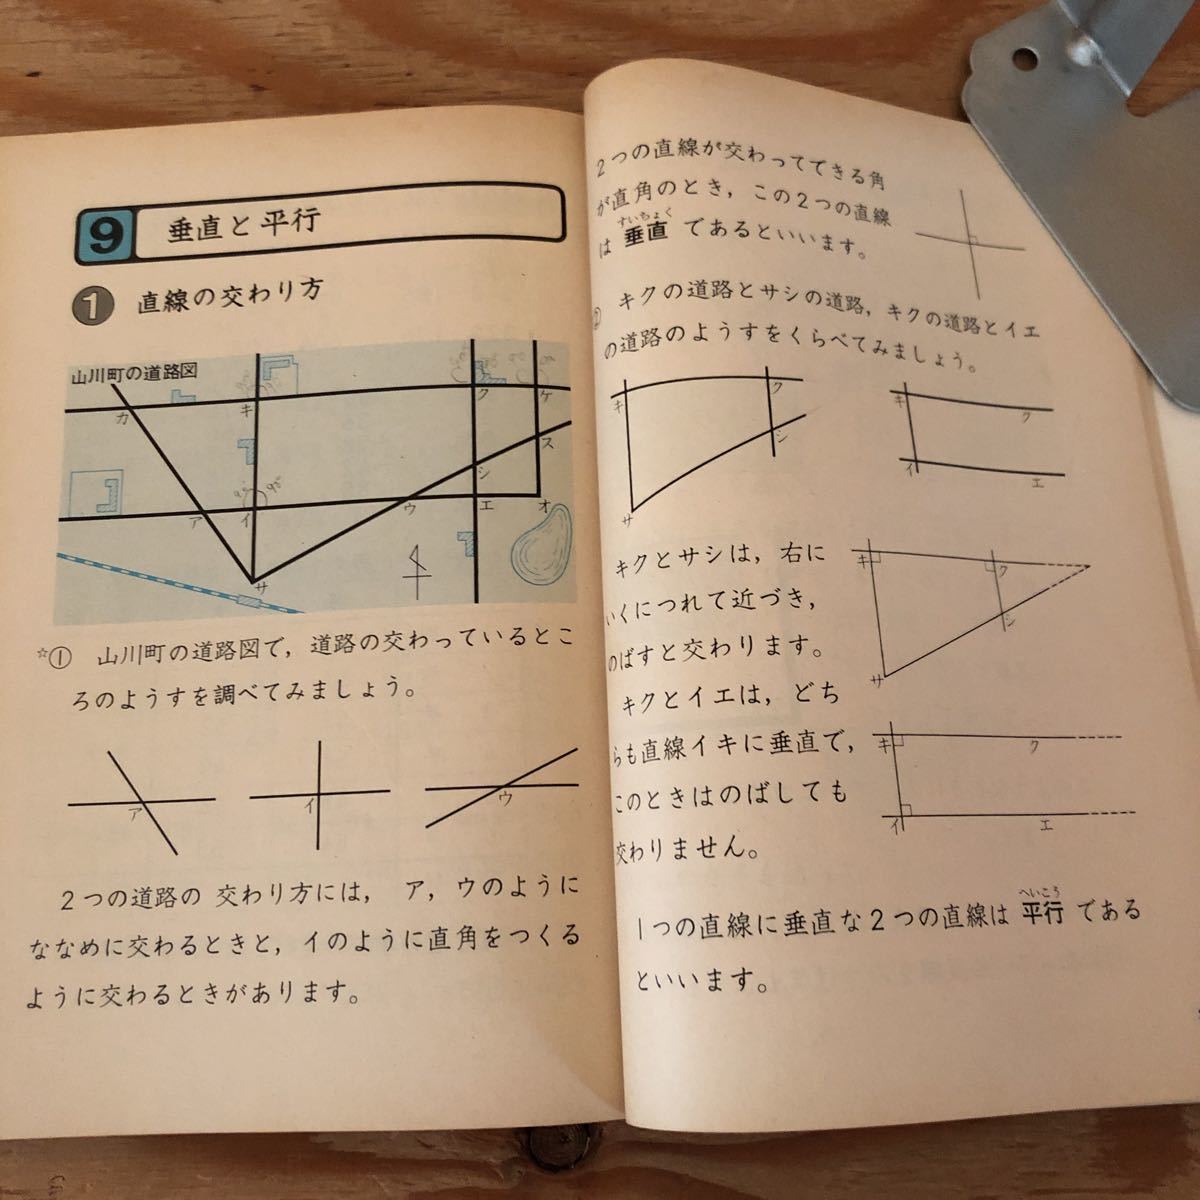 9 垂直と平行
1 直線の交わり方
山川町の道路図
カ
キ
ク
ケ
ス
シ
ア
イ
ウ
エ
オ
サ
☆① 山川町の道路図で，道路の交わっているとこ
ろのようすを調べてみましょう。
ア
イ
ウ
2つの道路の 交わり方には， ア，ウのように
ななめに交わるときと，イのように直角をつくる
ように交わるときがあります。
2つの直線が交わってできる角
が直角のとき，この2つの直線
すいちょく
は 垂直 であるといいます。
② キクの道路とサシの道路，キクの道路とイエ
の道路のようすをくらべてみましょう。
キ
ク
シ
サ
キ
ク
イ
エ
キクとサシは，右に
いくにつれて近づき，
のばすと交わります。
キ
ク
シ
サ
キクとイエは，どち
らも直線イキに垂直で，
このときはのばしても
交わりません。
キ
ク
イ
エ
へいこう
1つの直線に垂直な2つの直線は 平行 である
といいます。